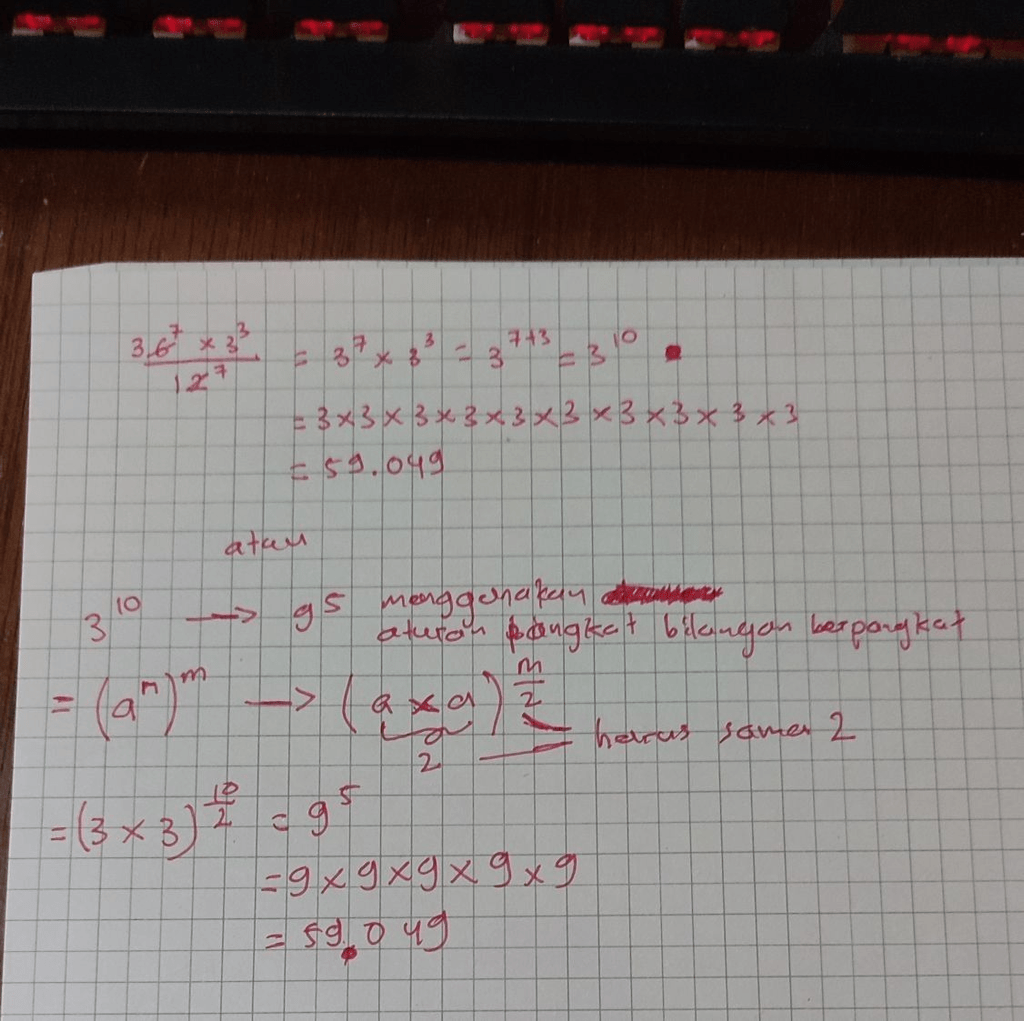 36⁷ × 3³ / 12⁷ = 3⁷ × 3³ = 3⁷⁺³ = 3¹⁰
= 3×3×3×3×3×3×3×3×3×3
= 59.049
atau
3¹⁰ → 9⁵ menggunakan
aturan pangkat bilangan berpangkat
= (aⁿ)ᵐ → (a×a)^(m/2)
2 harus sama 2
= (3×3)^(10/2) = 9⁵
= 9×9×9×9×9
= 59.049